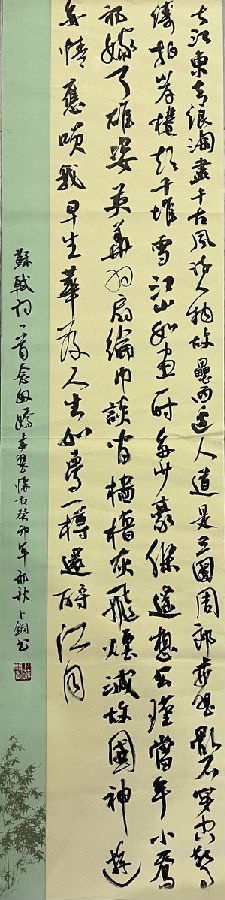 大江東去浪淘盡千古風流人物故壘西邊人道是三國周郎赤壁亂石穿空驚
濤拍岸捲起千堆雪江山如画一时多少豪傑遥想公瑾當年小喬
初嫁了雄姿英發羽扇綸巾談笑間檣櫓灰飛煙滅故國神遊
多情應笑我早生華髮人生如夢一樽還酹江月
蘇軾词一首念奴嬌赤壁懷古癸卯年初秋